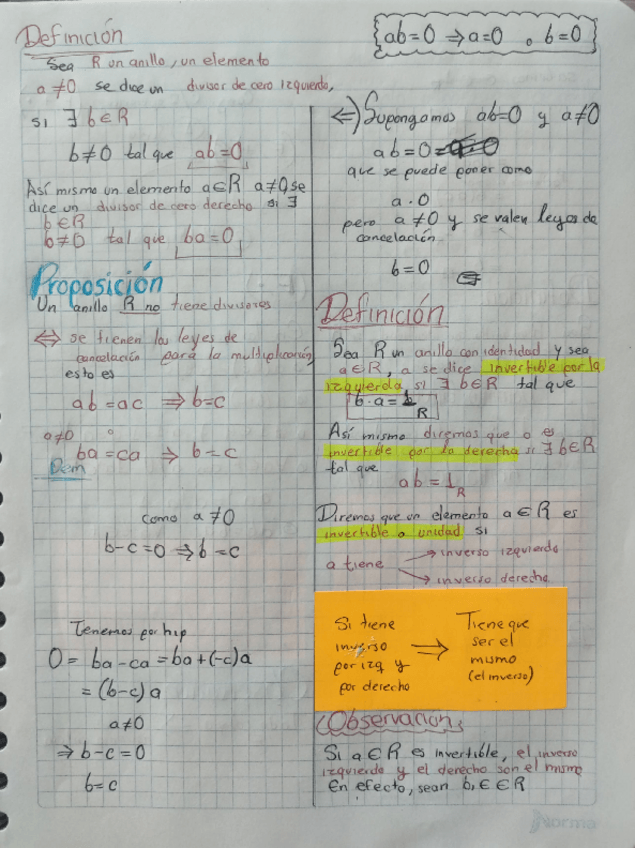 Definición
Sea R un anillo, un elemento
a ≠ 0 se dice un divisor de cero izquierdo,
si ∃ b ∈ R
b ≠ 0 tal que ab = 0
Así mismo un elemento a ∈ R a ≠ 0 se
dice un divisor de cero derecho si ∃
b ∈ R
b ≠ 0 tal que ba = 0
Proposición
Un anillo R no tiene divisores
⇔ se tienen las leyes de
cancelación para la multiplicación
esto es
ab = ac ⇒ b = c
a ≠ 0 o
ba = ca ⇒ b = c
Dem
como a ≠ 0
b - c = 0 ⇒ b = c
Tenemos por hip
0 = ba - ca = ba + (-c)a
= (b - c) a
a ≠ 0
⇒ b - c = 0
b = c
ab = 0 ⇒ a = 0 o b = 0
⇐) Supongamos ab = 0 y a ≠ 0
ab = 0 =
que se puede poner como
a · 0
pero a ≠ 0 y se valen leyes de
cancelación
b = 0
Definición
Sea R un anillo con identidad y sea
a ∈ R, a se dice invertible por la
izquierda si ∃ b ∈ R tal que
b · a = 1_R
Así mismo diremos que a es
invertible por la derecha si ∃ b ∈ R
tal que
ab = 1_R
Diremos que un elemento a ∈ R es
invertible o unidad si
a tiene → inverso izquierdo
→ inverso derecho
Si tiene
inverso
por izq y
por derecho
⇒
Tiene que
ser el
mismo
(el inverso)
Observación
Si a ∈ R es invertible, el inverso
izquierdo y el derecho son el mismo
En efecto, sean b, c ∈ R
Norma